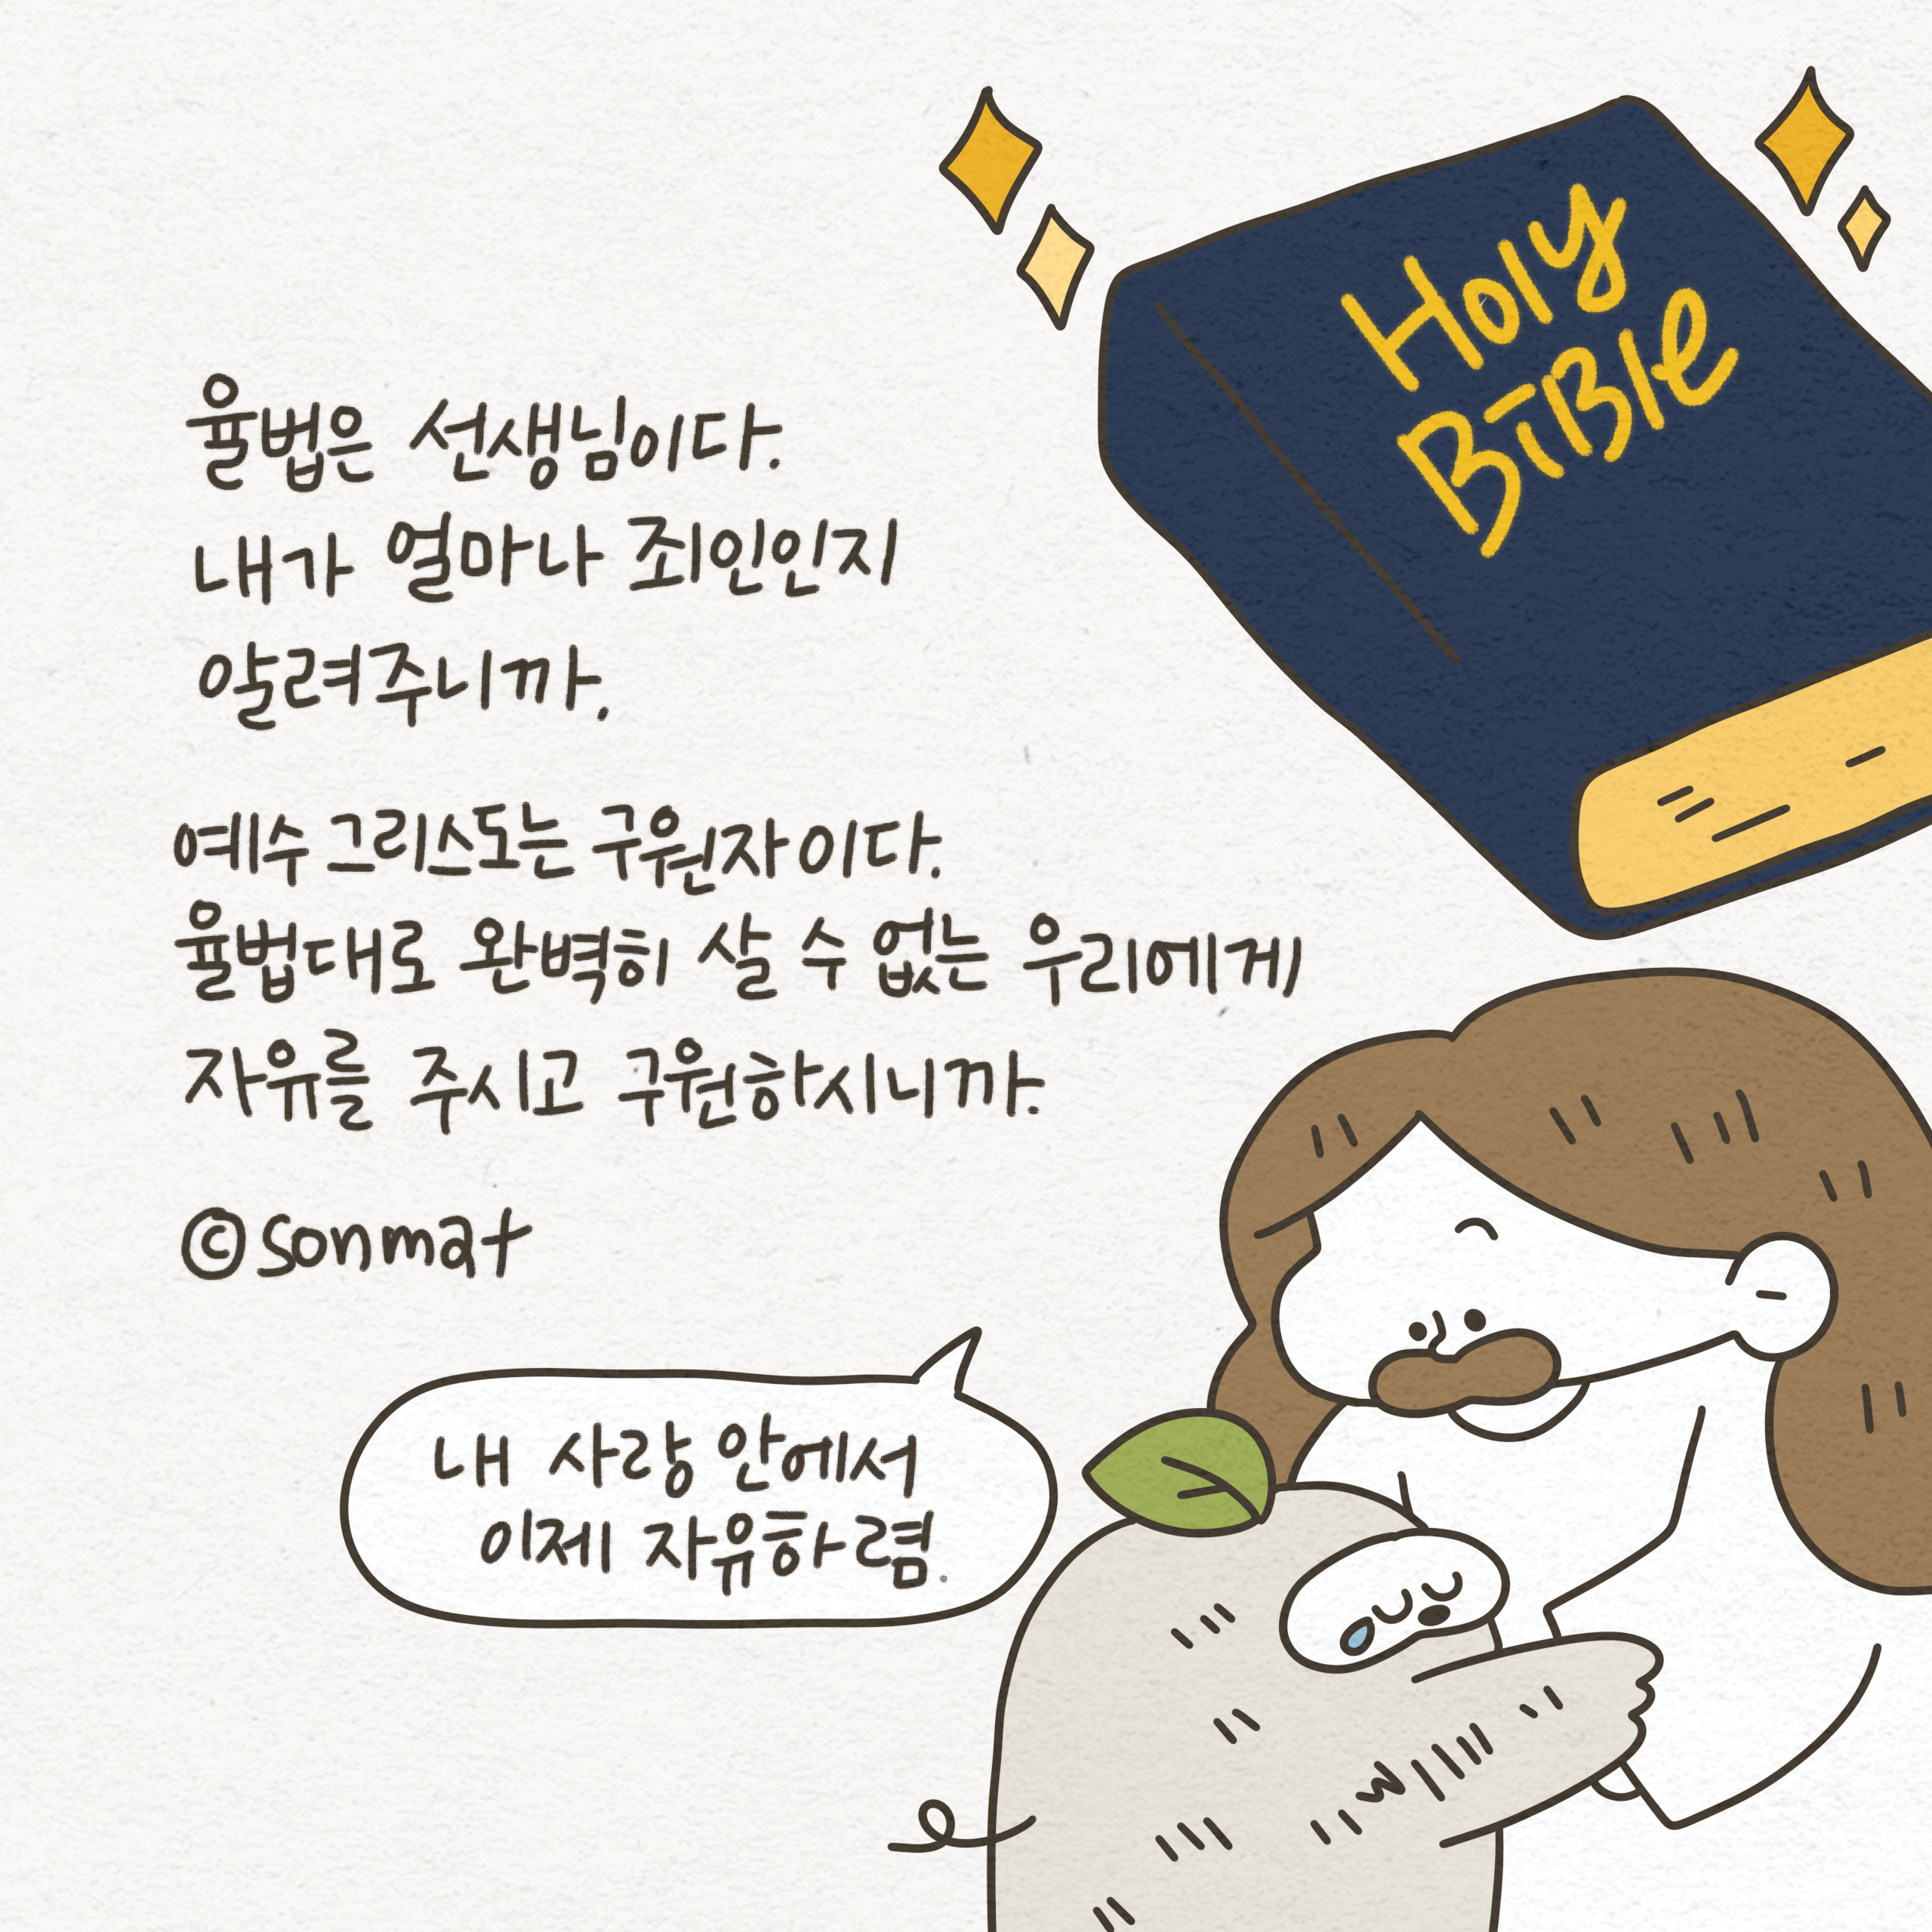 Holy
BiBle
율법은 선생님이다.
내가 얼마나 죄인인지
알려주니까.
예수 그리스도는 구원자이다.
율법대로 완벽히 살 수 없는 우리에게
자유를 주시고 구원하시니까.
©sonmat
내 사랑 안에서
이제 자유하렴.